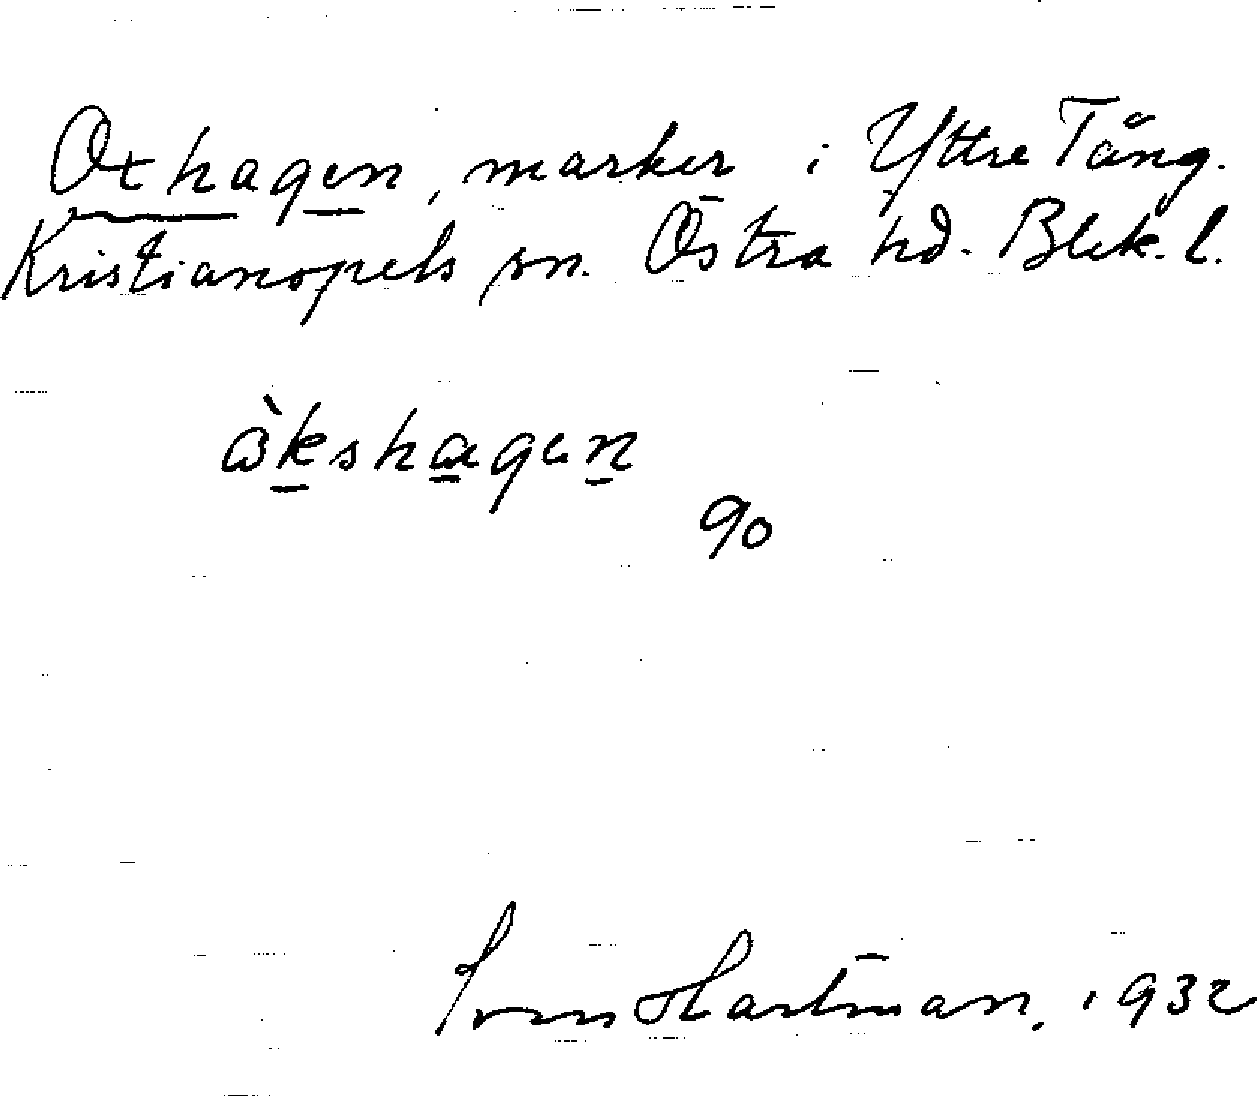 Oxhagen, marker i Yttre Tång.
Kristianopels sn. Östra hd. Blek. l.
åkshagen
90
Sven Hartman, 1932